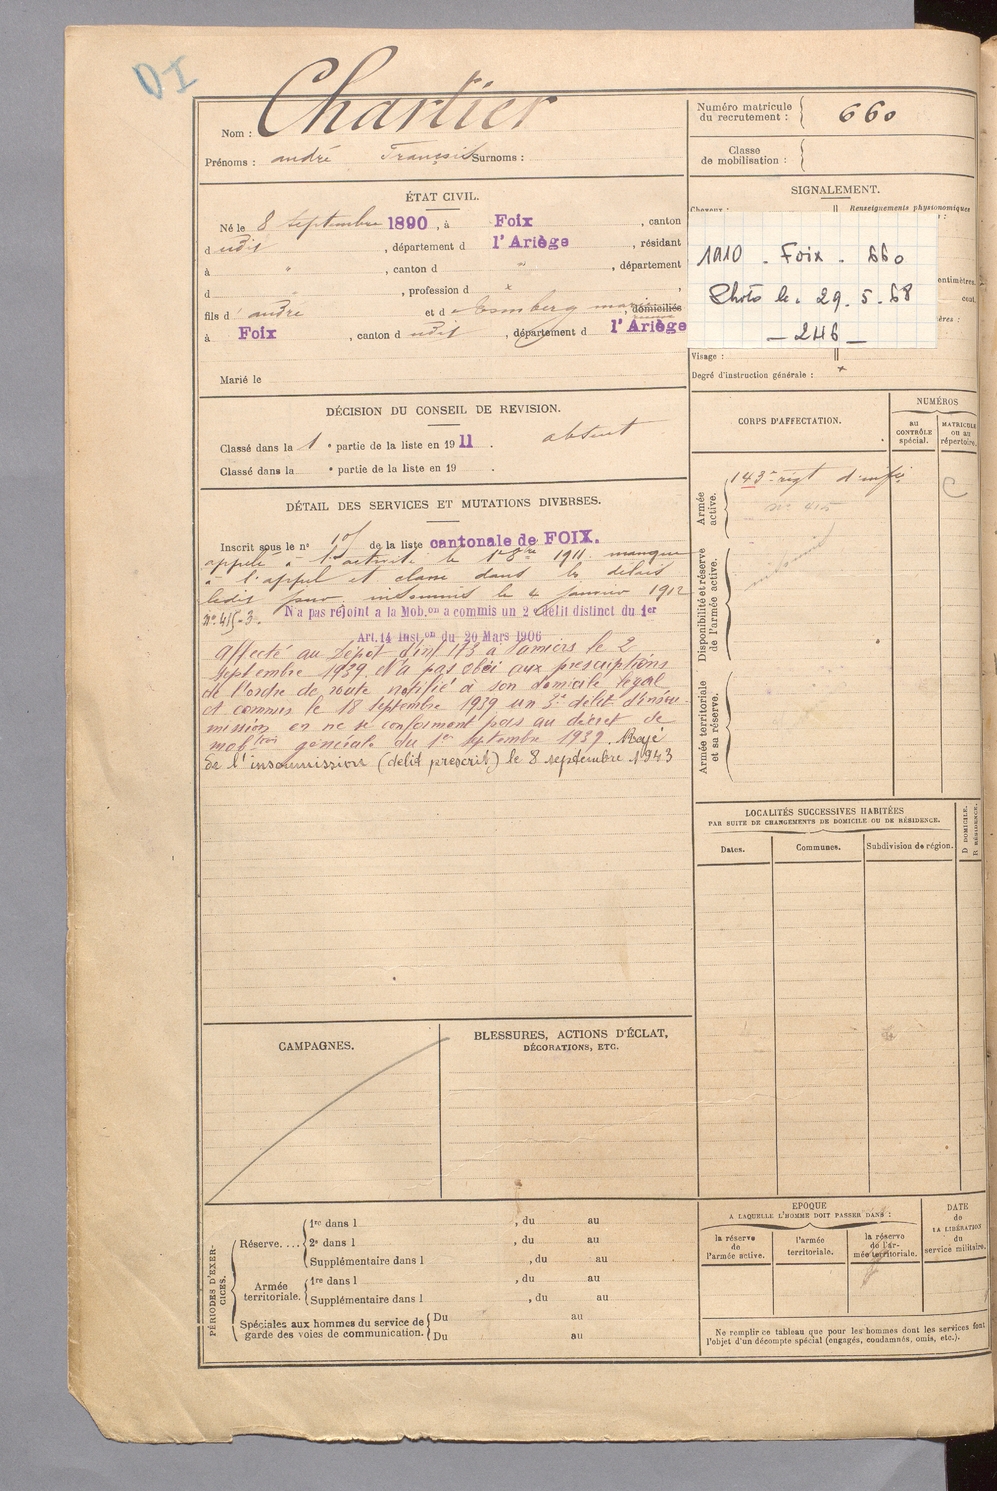 DI
Nom : Chartier
Prénoms : andré François Surnoms :
Numéro matricule du recrutement : 660
Classe de mobilisation :
ÉTAT CIVIL.
Né le 8 septembre 1890, à Foix, canton
d udit, département d l'Ariège, résidant
à " , canton d " , département
d " , profession d x
fils d' andré et d domiciliés
à Foix, canton d udit, département d l'Ariège
Marié le
SIGNALEMENT.
Cheveux :
Renseignements physionomiques
1910 - Foix - 660
Photo le. 29.5.68
- 246 -
entimètres.
cent.
Visage :
Degré d'instruction générale : x
DÉCISION DU CONSEIL DE REVISION.
Classé dans la 1 e partie de la liste en 1911. absent
Classé dans la e partie de la liste en 19 .
DÉTAIL DES SERVICES ET MUTATIONS DIVERSES.
Inscrit sous le no de la liste cantonale de FOIX.
appelé à l'activité le 1er 8bre 1911. manque
à l'appel et classé dans les délais
insoumis le 4 janvier 1912
No 415-3.
N'a pas rejoint a la Mob.on a commis un 2 délit distinct du 1er
Art.14 Inst.on du 20 Mars 1906
Affecté au Dépôt d'inf 173 à Pamiers le 2
septembre 1939, n'a pas obéi aux prescriptions
de l'ordre de route notifié à son domicile légal
et commis le 18 septembre 1939 un 3e délit d'insou-
mission en ne se conformant pas au décret de
mobtion générale du 1er septembre 1939. Rayé
de l'insoumission (délit prescrit) le 8 septembre 1943
CORPS D'AFFECTATION.
NUMÉROS
au CONTRÔLE spécial.
MATRICULE ou au répertoire.
Armée active.
143e rigt d'infie
no 415
insoumis
C
Disponibilité et réserve de l'armée active.
Armée territoriale et sa réserve.
LOCALITÉS SUCCESSIVES HABITÉES
PAR SUITE DE CHANGEMENTS DE DOMICILE OU DE RÉSIDENCE.
Dates.
Communes.
Subdivision de région.
D DOMICILE.
R RÉSIDENCE.
CAMPAGNES.
BLESSURES, ACTIONS D'ÉCLAT,
DÉCORATIONS, ETC.
PÉRIODES D'EXERCICES.
Réserve....
1re dans l , du au
2e dans l , du au
Supplémentaire dans l , du au
Armée territoriale.
1re dans l , du au
Supplémentaire dans l , du au
Spéciales aux hommes du service de garde des voies de communication.
Du au
Du au
EPOQUE
A LAQUELLE L'HOMME DOIT PASSER DANS :
la réserve de l'armée active.
l'armée territoriale.
la réserve de l'armée territoriale.
DATE de LA LIBÉRATION du service militaire.
Ne remplir ce tableau que pour les hommes dont les services font
l'objet d'un décompte spécial (engagés, condamnés, omis, etc.).